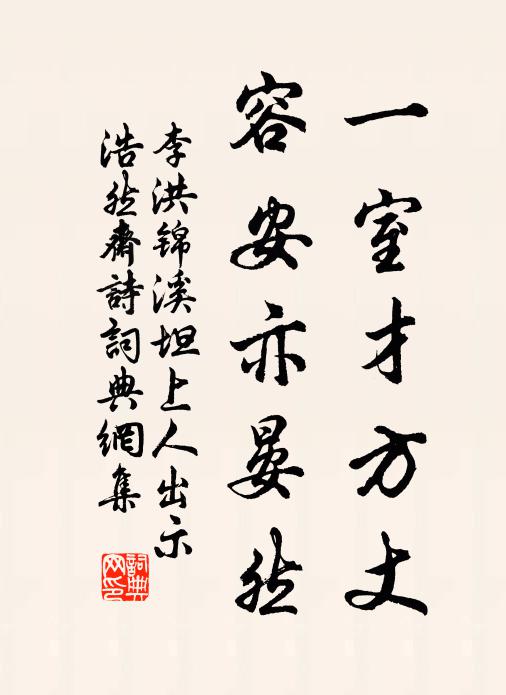 一室才方丈
容安亦晏然
李洪锦溪坦上人出示
浩然斋詩詞典網集
詞典
网印